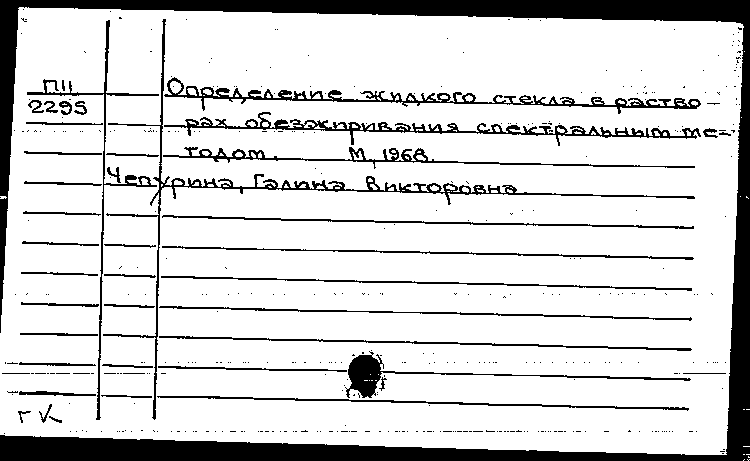 П11 Определение жидкого стекла в раство-
2295 рах обезжиривания спектральным ме-
тодом. М, 1968.
Чепурина, Галина Викторовна.
г К